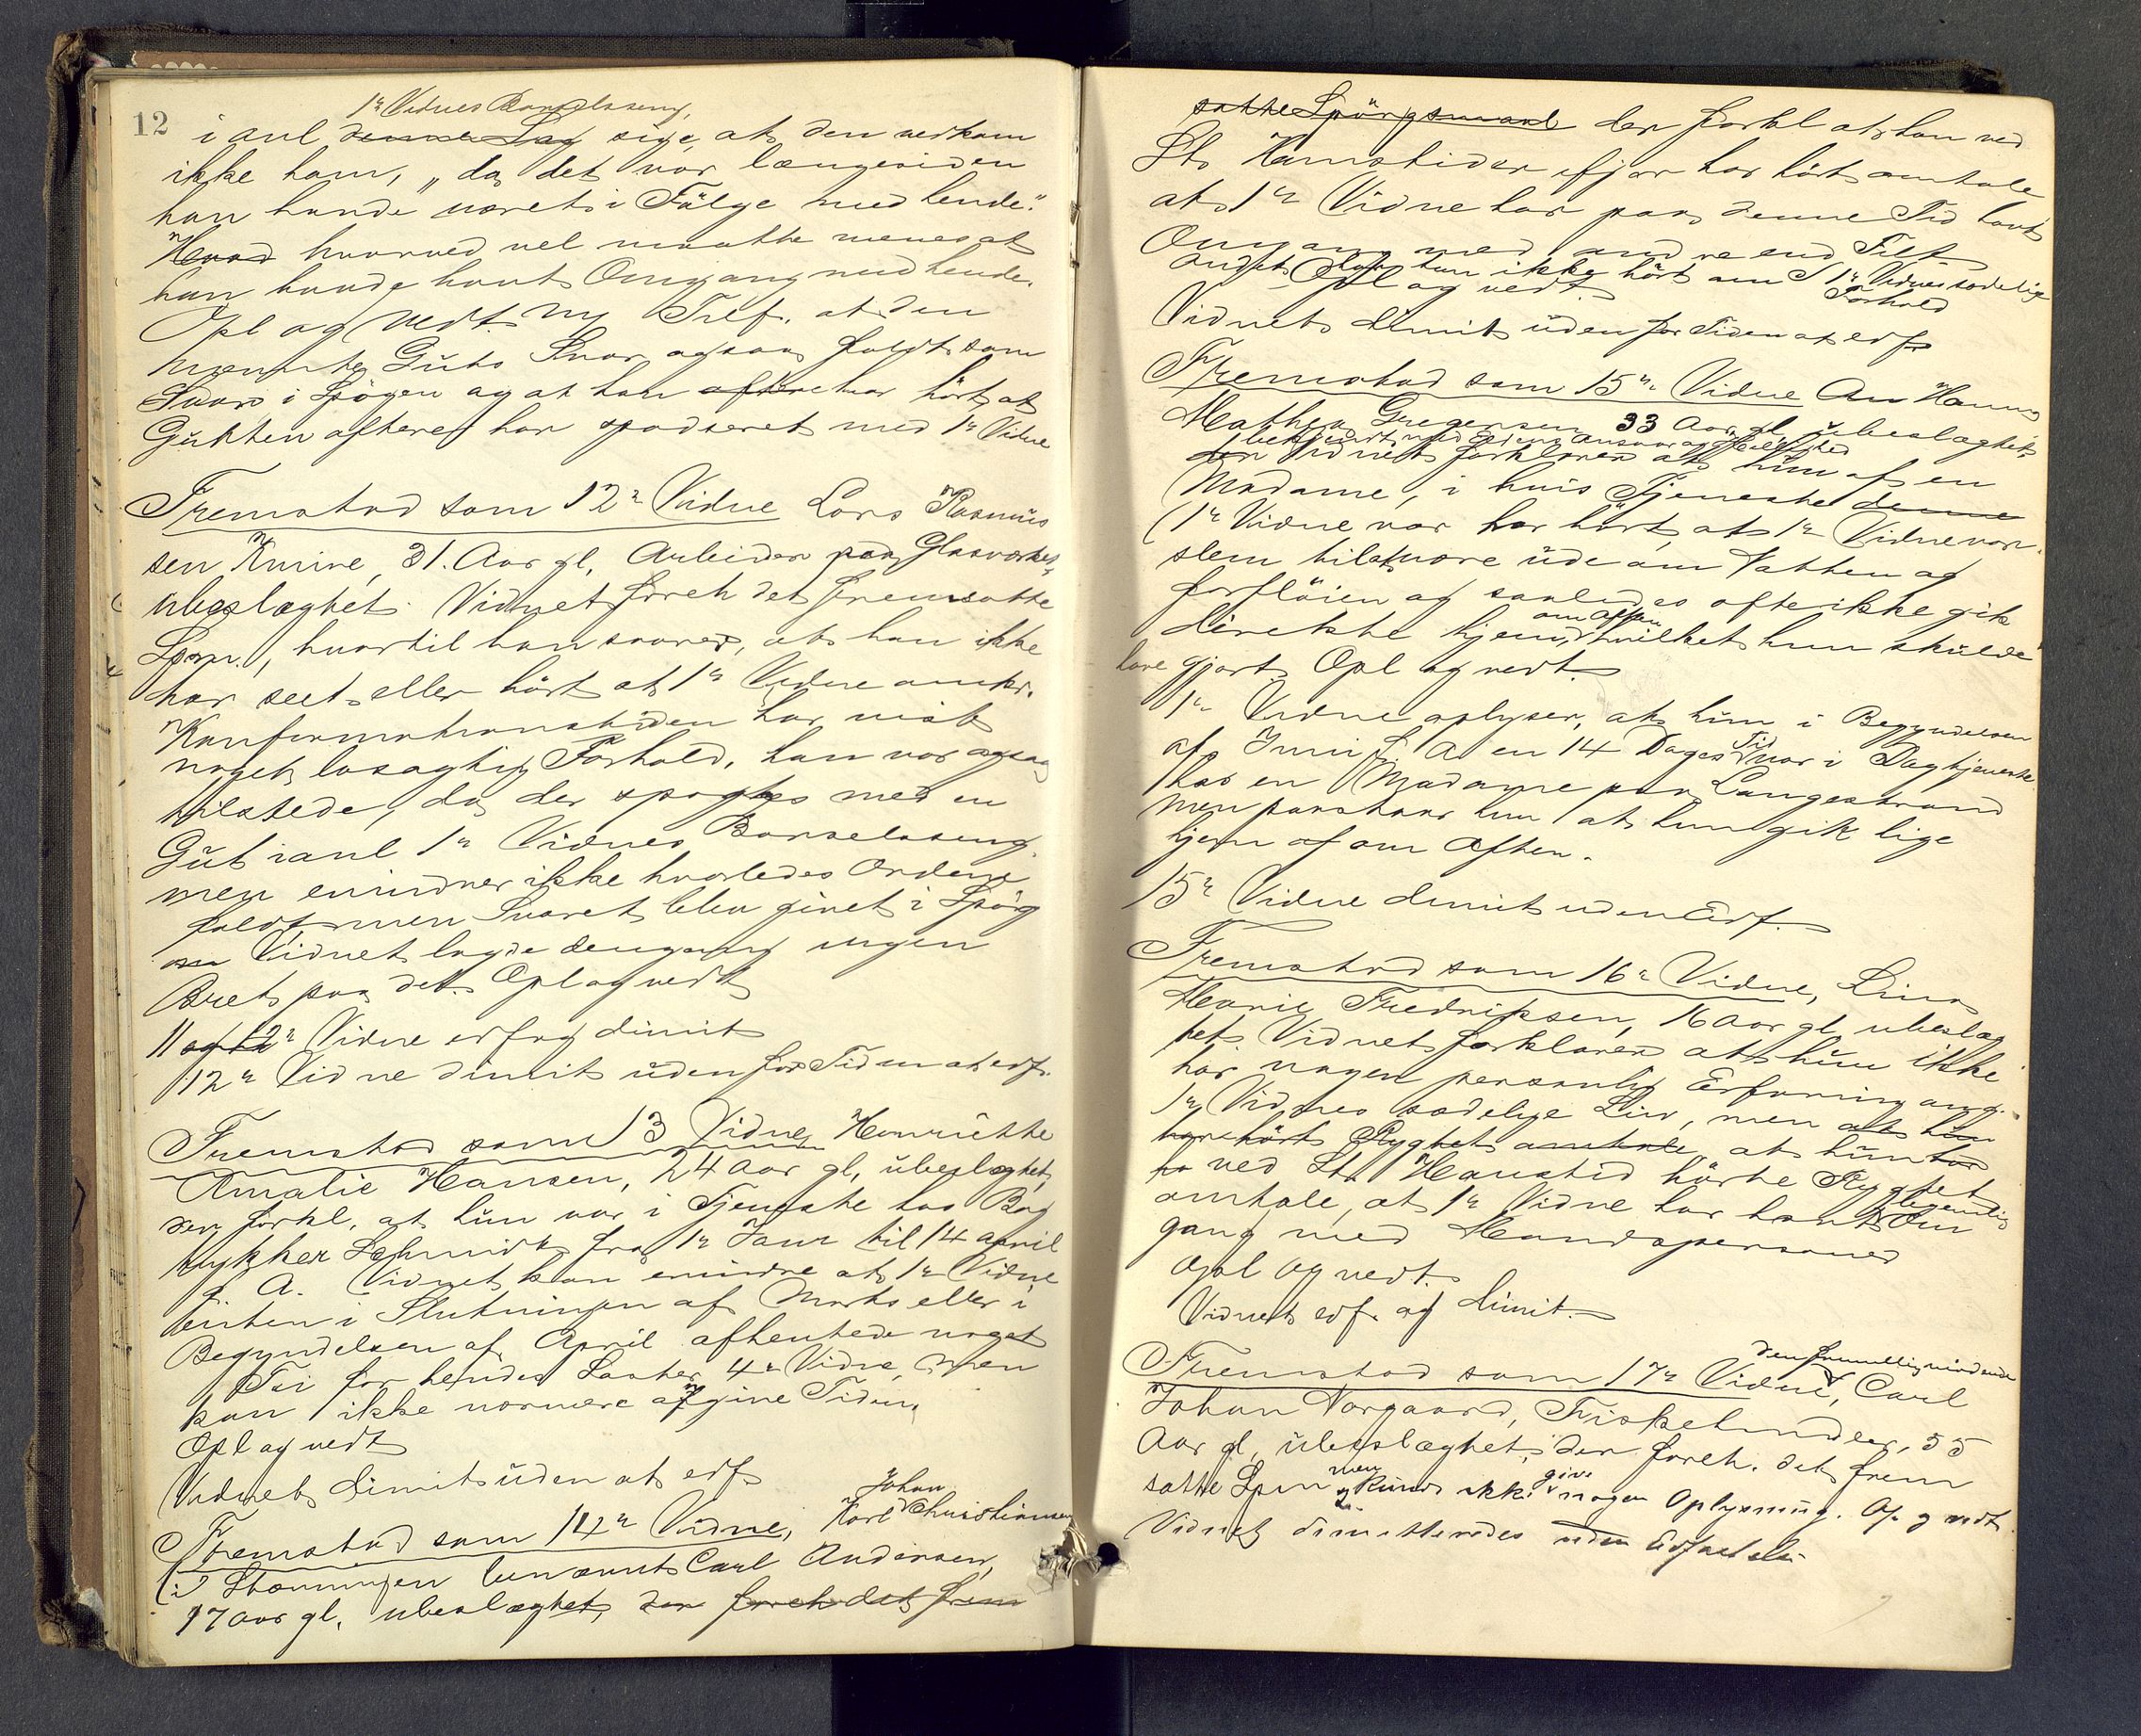 12
1ste Vidnes Barselseng,
i anl denne Sag sige, at den vedkom
ikke ham, „da det var længesiden
han havde været i Følge med hende."
Hvad hvorved vel maatte menes at
han havde havt Omgang med hende.
Opl og vedt
nævnte Guts Svar ogsaa faldt som
Svar i Spøgen og at han oftere har hørt, at
Gutten oftere har spadseret med 1ste Vidne
Fremstod som 12te Vidne Lars Rasmus
sen 31. Aar gl, Arbeider paa Glasværket,
ubeslægtet. Vidnet foreh det fremsatte
Spm., hvortil han svarer, at han ikke
har seet eller hørt at 1ste Vidne omkr.
Konfirmationstiden har vist
noget løsagtig Forhold, han var ogsaa
tilstede, da der spøgtes med en
Gut i anl 1ste Vidnes Barselseng
men erindrer ikke hvorledes Ordene
faldt, men Svaret blev givet i Spøg
Vidnet lagde dengang ingen
Vægt paa det. Opl og vedt
11 og 12te Vidne edf og dimit
12te Vidne dimit uden for Tiden at edf.
Fremstod som 13 Vidne Henriette
Amalie Hansen, 24 Aar gl, ubeslægtet,
der forkl. at hun var i Tjeneste hos Bog
trykker Schmidt fra 1ste Janr til 14 April
f. A. Vidnet kan erindre at 1ste Vidne
enten i Slutningen af Marts eller i
Begyndelsen af April afhentede noget
Tøi for hendes Søster 4de Vidne, men
kan ikke nærmere afgive Tiden.
Opl og vedt
Vidnet dimit uden at edf
Fremstod som 14de Vidne, Karl Johan Christiansen
(i Stævningen benævnt Carl Andersen,
17 aar gl. ubeslægtet, der foreh det frem
satte Spörgsmaal der forkl at han ved
St Hanstider ifjor har hört omtale
at 1ste Vidne har paa denne Tid havt
Omgang med andre end Tilt
andet har han ikke hört om 1ste Vidnes sædelige
Forhold
Opl og vedt.
Vidnet dimit uden for Tiden at edf
Fremstod som 15de Vidne An Hanna
Mathea Gregersen 33 Aar gl ubeslægtet,
bekjendt med Edens Ansvar og Hellighed
den Vidnet forklarer at hun af en
Madame, i hvis Tjeneste denne
(1ste Vidne var har hört, at 1ste Vidne var
slem til at være ude om Natten og
forfløien og saaledes ofte ikke gik
direkte hjem, om Aften hvilket hun skulde
have gjort. Opl og vedt.
1ste Vidne oplyser, at hun i Begyndelsen
af Juni f. A en 14 Dages Tid var i Dagtjeneste
hos en Madame paa Langestrand
men paastaar hun at hun gik lige
hjem af om Aften.
15de Vidne dimit uden Edf.
Fremstod som 16de Vidne, Lina
Marie Fredriksen, 16 Aar gl, ubeslæg
tet Vidnet forklarer at hun ikke
har nogen personlig Erfaring ang.
1ste Vidnes sædelige Liv, men at hun
have hört Rygtet omtale at hun har
ved St. Hanstid hörte Rygtet
omtale, at 1ste Vidne har havt legemlig Om
gang med Mandspersoner
Opl og vedt.
Vidnet edf. og dimit.
Fremstod som 17de Vidne, den frivillig mødende Carl
Johan Norgaard, Fiskehandler, 55
Aar gl, ubeslægtet, der foreh. det frem
satte Spm men kunde ikke give nogen Oplysning. Op. g vedt
Vidnet dimitteredes uden Edfæstelse